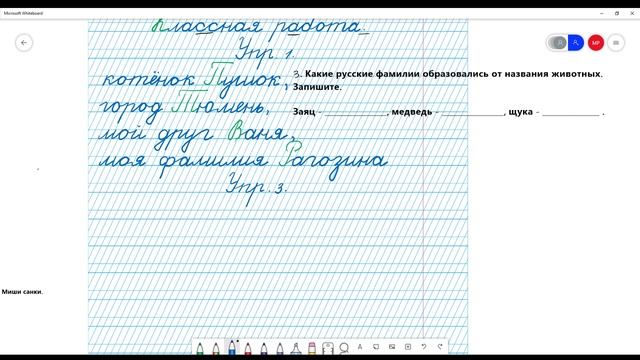 Microsoft Whiteboard
Классная работа
Упр. 1.
котёнок Пушок,
город Тюмень,
мой друг Ваня,
моя фамилия Рагозина
Упр. 3.
3. Какие русские фамилии образовались от названия животных.
Запишите.
Заяц - ____________, медведь - ____________, щука - ____________ .
Миши санки.
MP